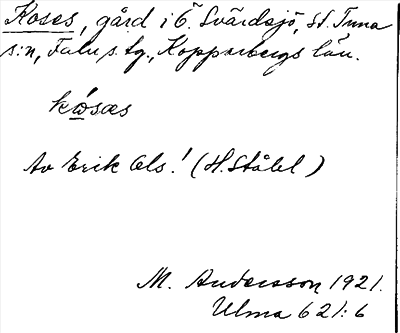 Koses, gård i Ö. Svärdsjö, St. Tuna
s:n, Falu s. tg., Kopparbergs län.
kὼsæs
Av Erik Ols.! (H. Ståhl)
M. Andersson 1921.
Ulma 621:6